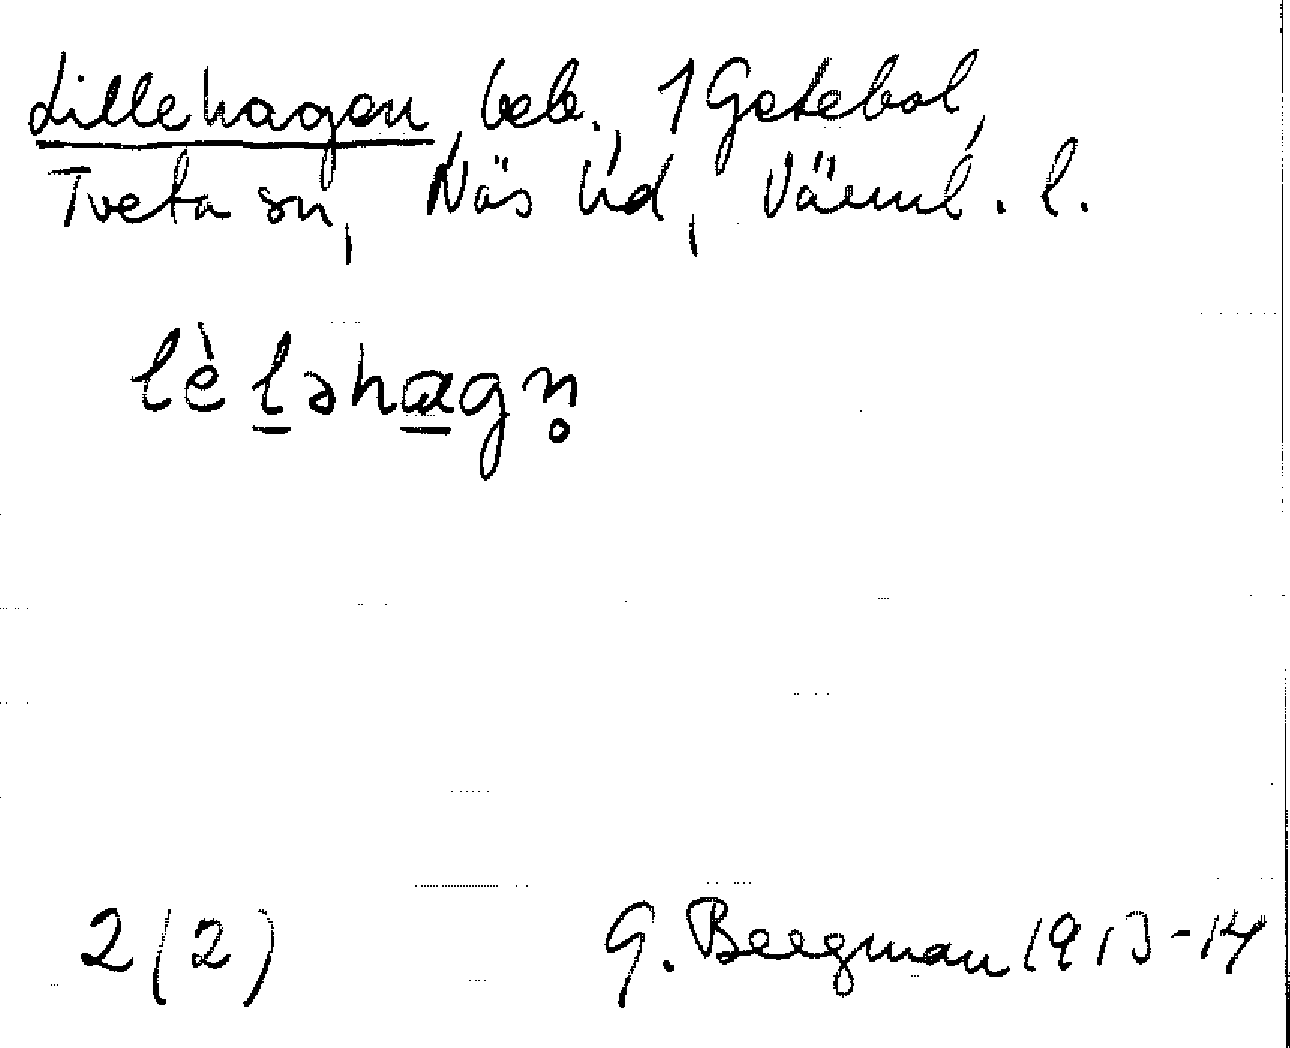 Lillehagen, beb., 1 Getebol,
Tveta sn, Näs hd, Värml. l.
lèl̲əha̲gn̥
2(2) G. Bergman 1913-14